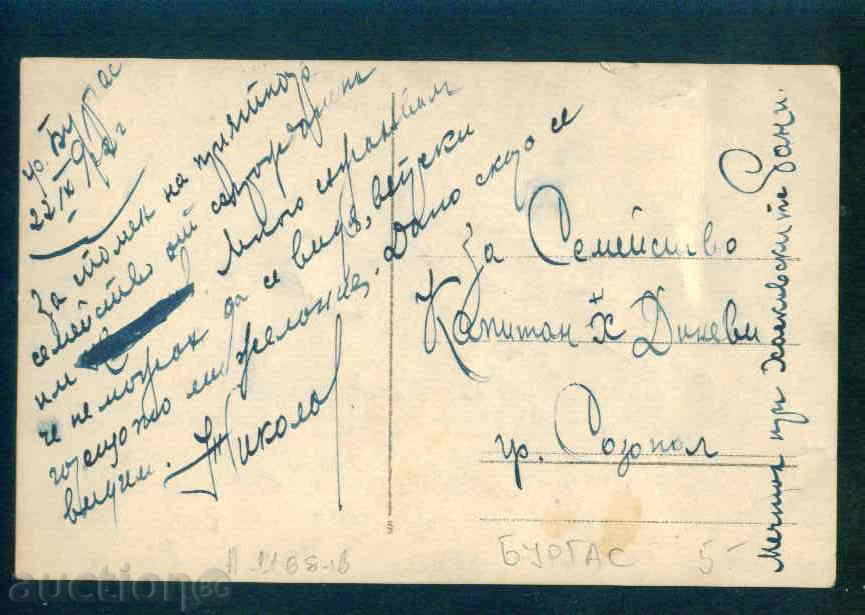 гр. Бургас
22/IX
За спомен на приятното
семейство от
им Много съжалявам
че не можах да се видя, въпреки
горещото ми желание. Дано скоро се
видим. Никола
За Семейство
Капитан Х Диневи
гр. Созопол
при Халкиварите Бани.
А 1168-ІВ
БУРГАС 5-
auction BG